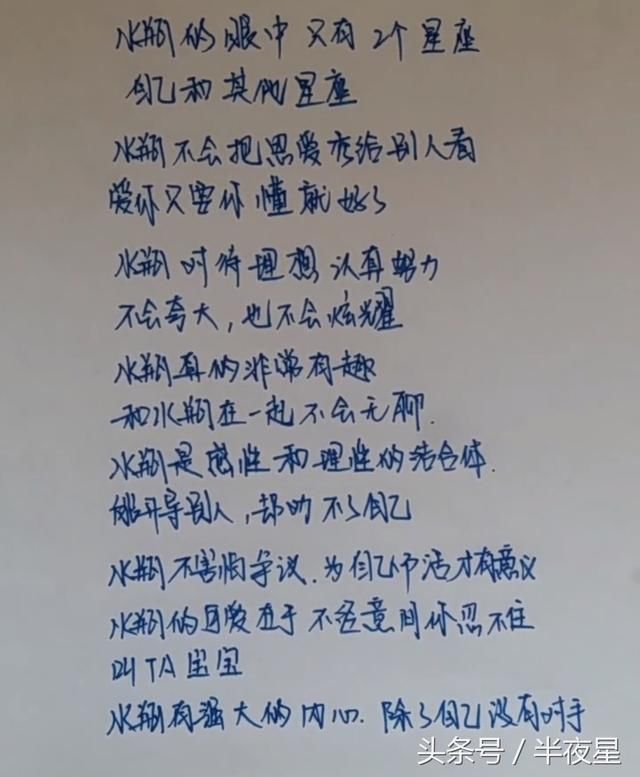 水瓶的眼中只有2个星座
自己和其他星座
水瓶不会把恩爱秀给别人看
爱你只要你懂就好了
水瓶对待理想认真努力
不会夸大,也不会炫耀
水瓶真的非常有趣
和水瓶在一起不会无聊.
水瓶是感性和理性的结合体.
能开导别人,却劝不了自己
水瓶不害怕争议.为自己而活才有意义
水瓶的可爱在于不经意间你忍不住
叫TA宝宝
水瓶有强大的内心.除了自己没有对手
头条号/半夜星